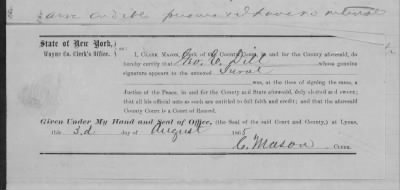 are credible persons & I have no interest
State of New York,
Wayne Co. Clerk's Office.
I, CLARK MASON, Clerk of the County Court in and for the County aforesaid, do
hereby certify that Geo. C. Dill whose genuine
signature appears to the annexed Jurat
was, at the time of signing the same, a
Justice of the Peace, in and for the County and State aforesaid, duly elected and sworn;
that all his official acts as such are entitled to full faith and credit; and that the aforesaid
County Court is a Court of Record.
Given Under My Hand and Seal of Office, (the Seal of the said Court and County,) at Lyons,
this 3.d day of August 1865
C. Mason
CLERK.